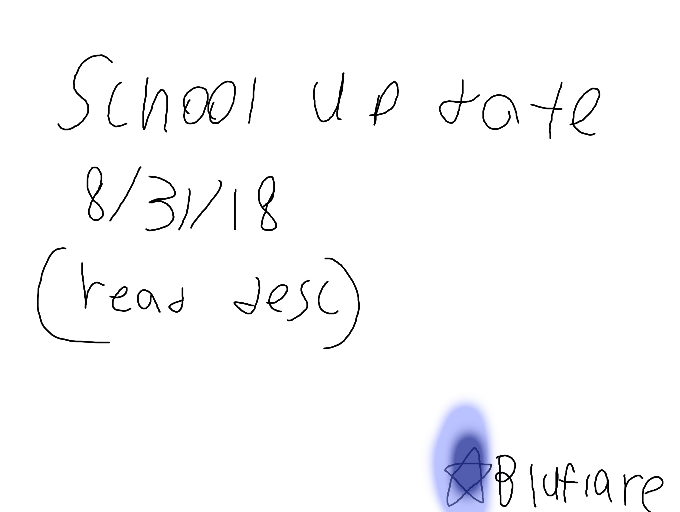 School update
8/31/18
(read desc)
Bluflare